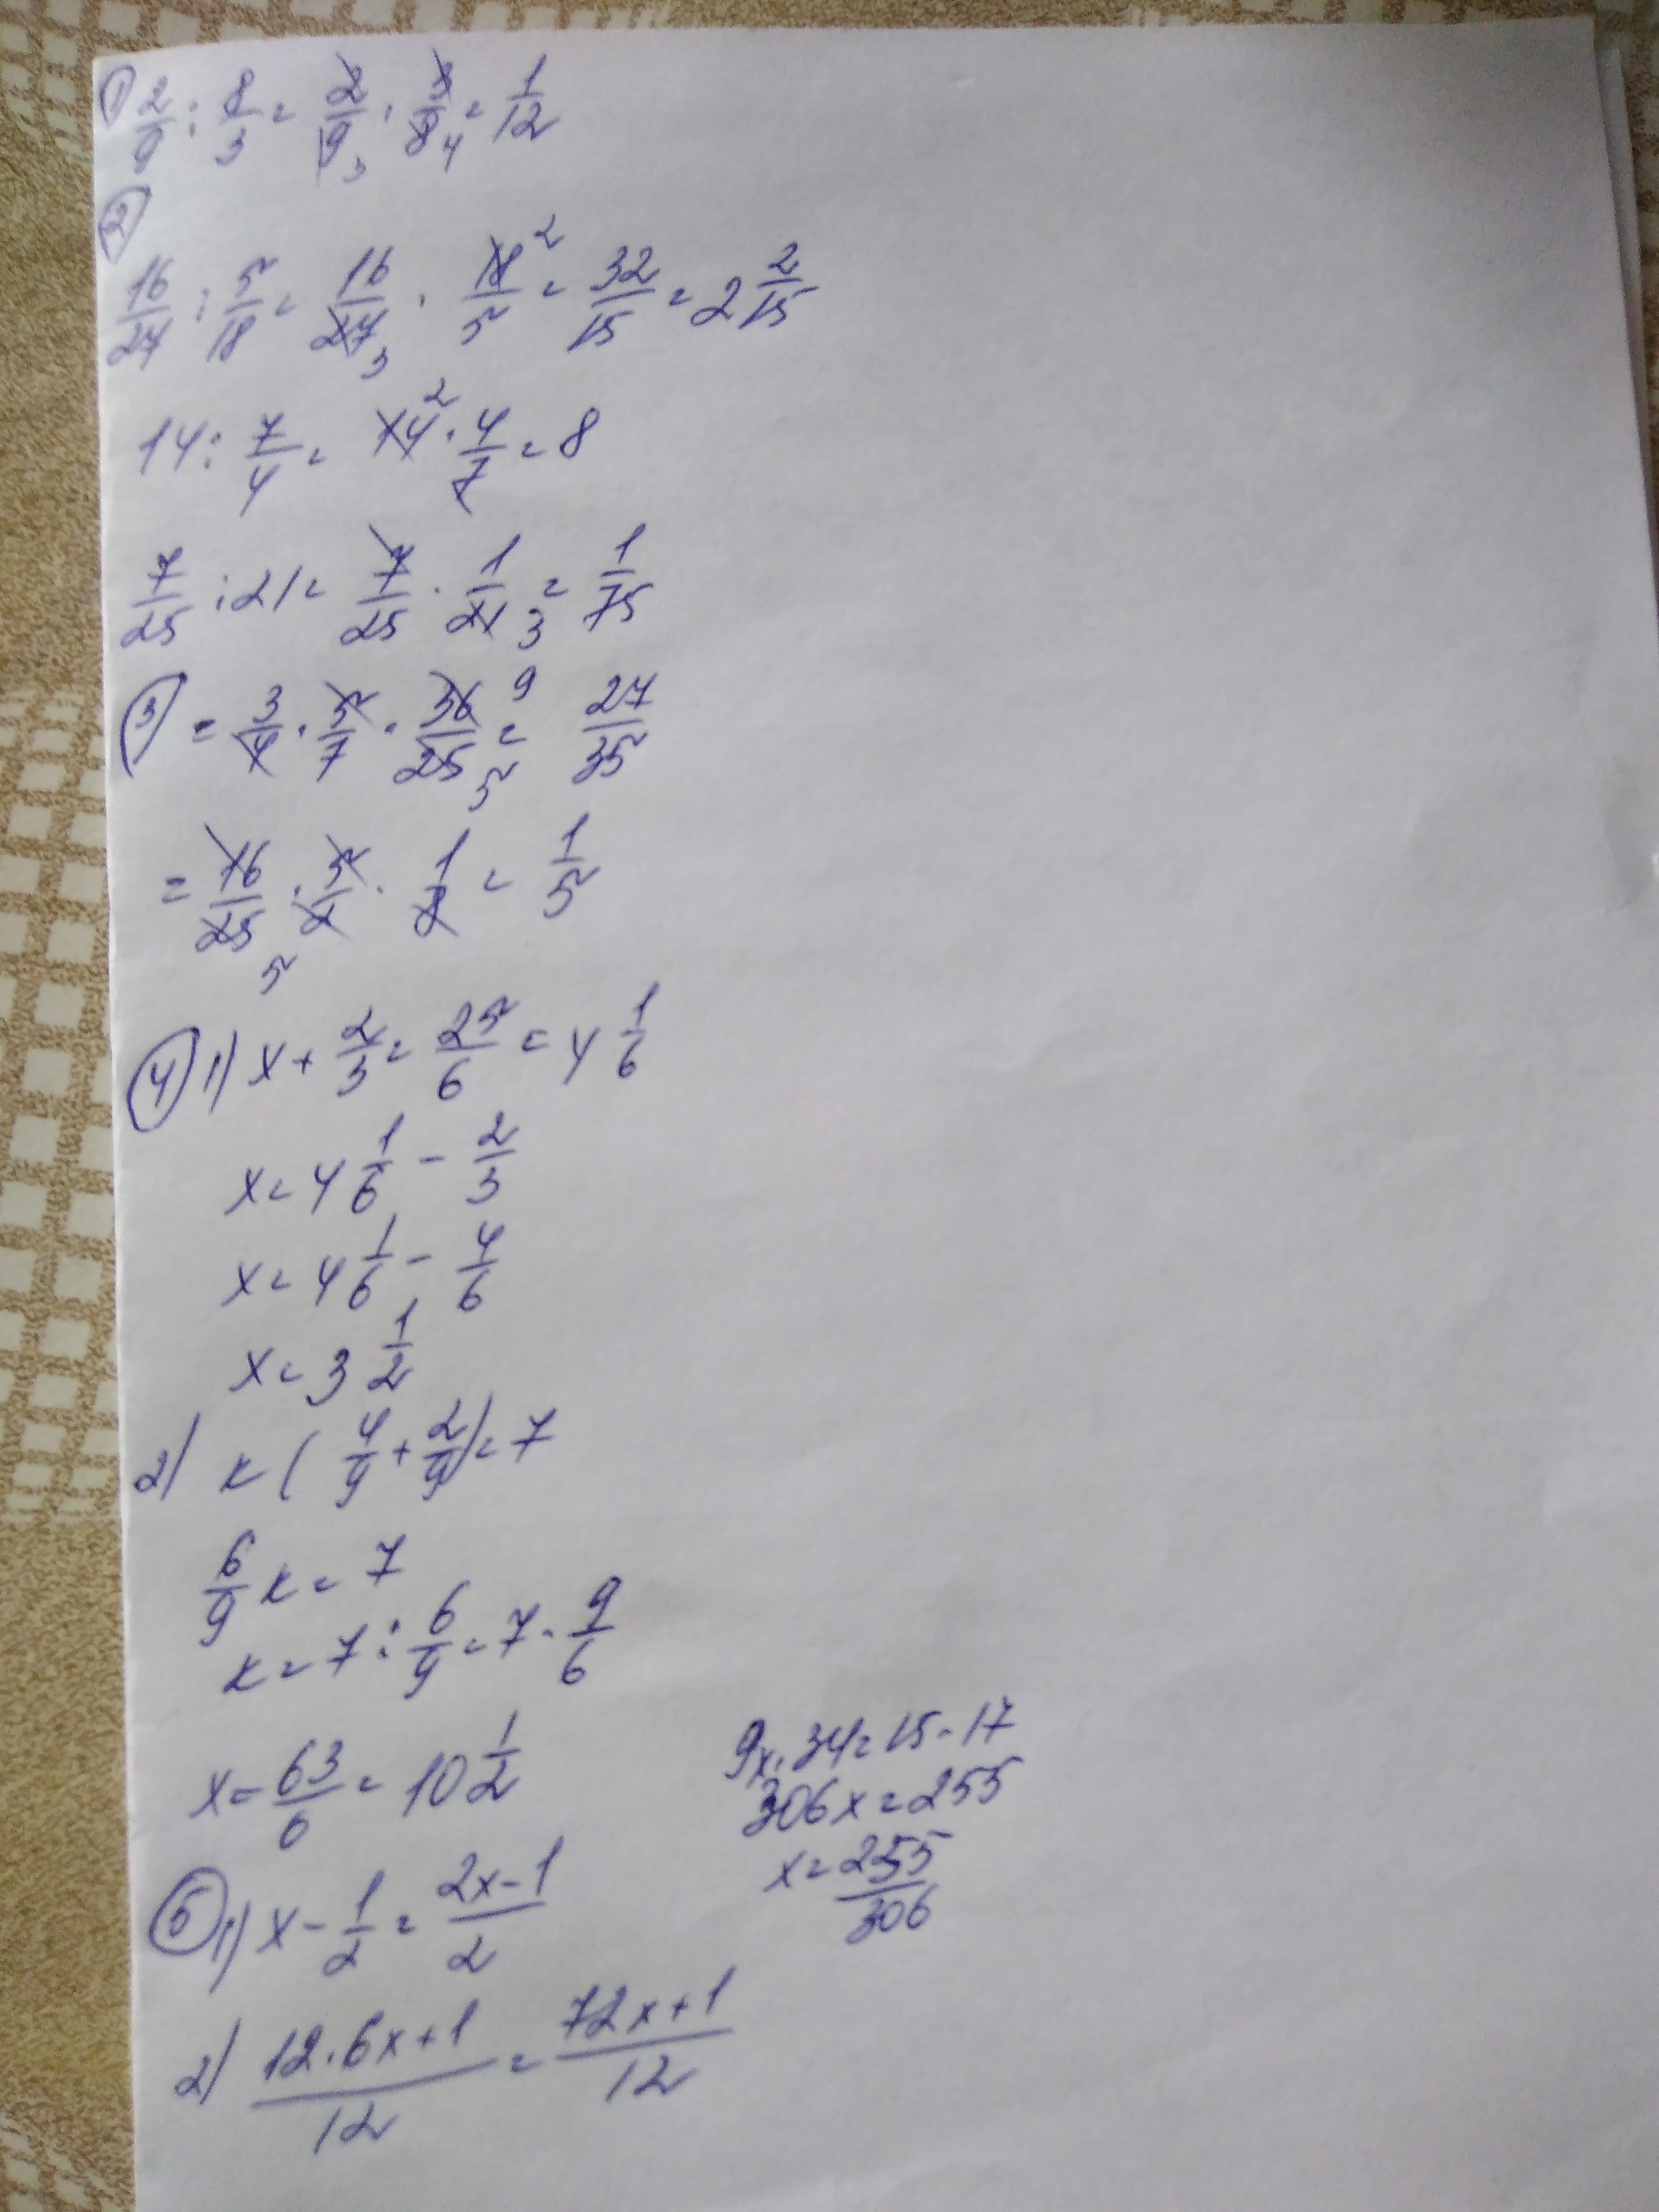 ① 2/9 : 8/3 = 2/9 · 3/8 = 1/12
3 4
②
16/27 : 5/18 = 16/27 · 18/5 = 32/15 = 2 2/15
3 2
14 : 7/4 = 14 · 4/7 = 8
2
7/25 : 21 = 7/25 · 1/21 = 1/75
3
③ = 3/4 · 5/7 · 36/25 = 27/35
9 5
= 16/25 · 5/2 · 1/8 = 1/5
5
④ 1) x + 2/3 = 25/6 = 4 1/6
x = 4 1/6 - 2/3
x = 4 1/6 - 4/6
x = 3 1/2
2) x ( 4/9 + 2/9 ) = 7
6/9 x = 7
x = 7 : 6/9 = 7 · 9/6
x = 63/6 = 10 1/2
9x · 34 = 15 · 17
306x = 255
x = 255/306
⑤ 1) x - 1/2 = 2x-1/2
2) 12·6x+1/12 = 72x+1/12